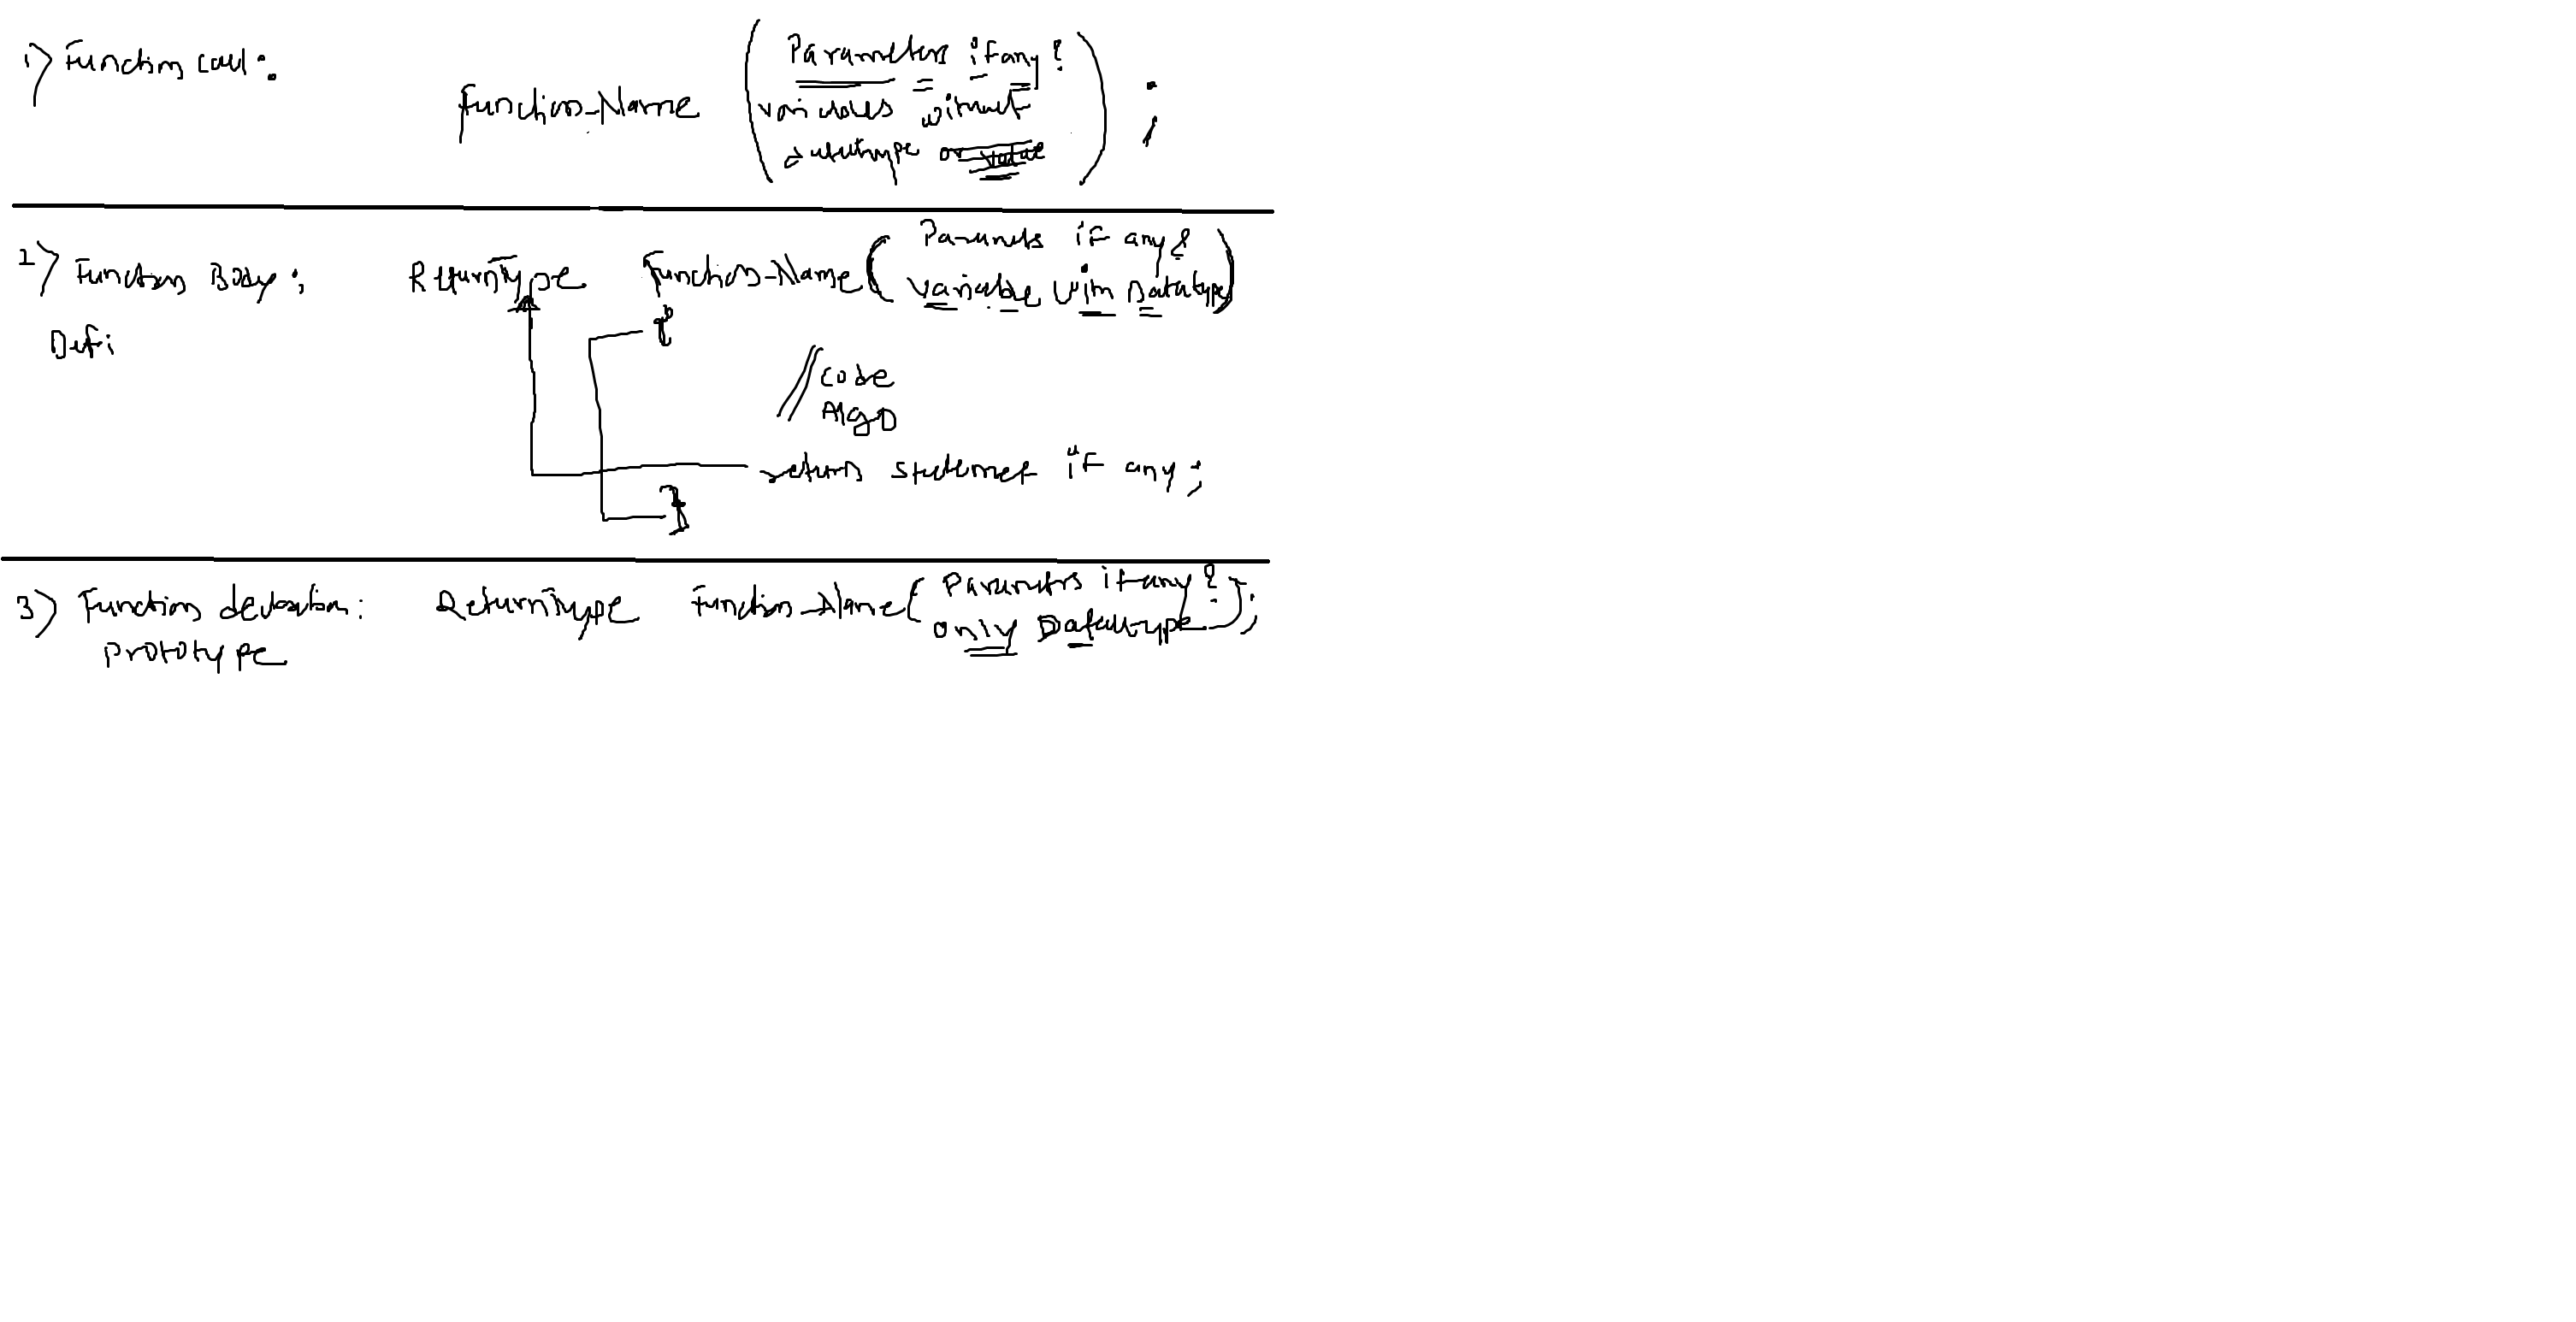 1) Function call:
Function_Name ( Parameters if any ? ) ;
variables without
datatype or value
2) Function Body : ReturnType Function_Name ( Paramets if any ?
variable with Datatype )
Defi
{
// code
Algo
return statemet if any ;
}
3) Function declaration : ReturnType Function_Name ( Parametrs if any ?
only Datatype ) ;
prototype